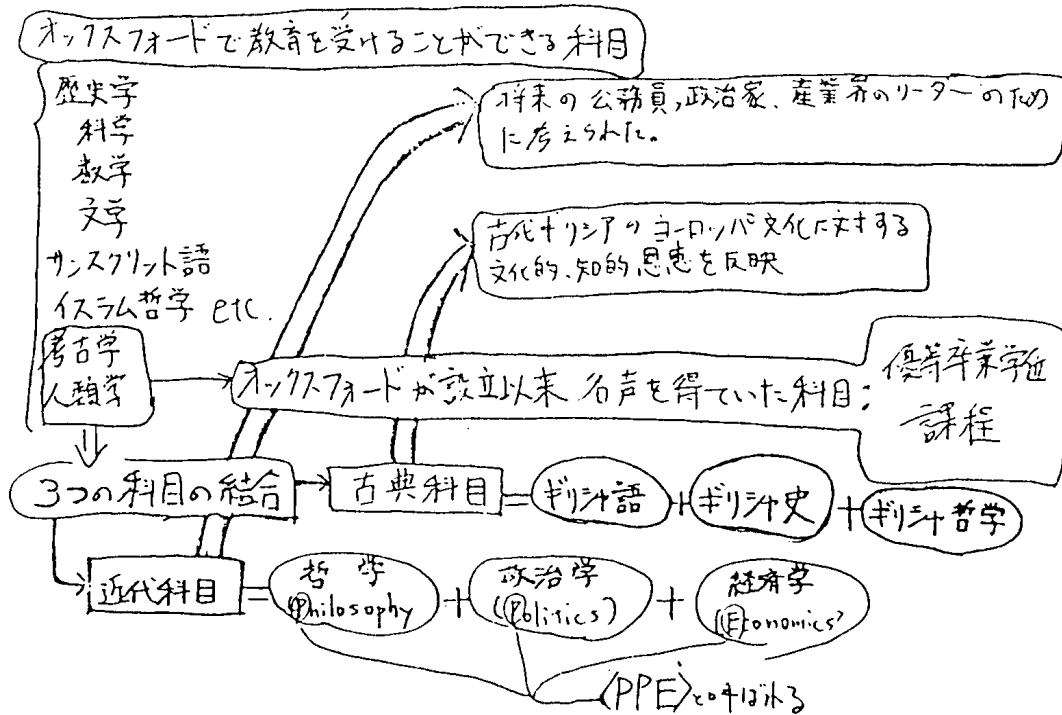 オックスフォードで教育を受けることができる科目
歴史学
科学
数学
文学
サンスクリット語
イスラム哲学 etc.
考古学
人類学
将来の公務員,政治家、産業界のリーダーのため
に考えられた。
古代ギリシアのヨーロッパ文化に対する
文化的、知的恩恵を反映
オックスフォードが設立以来 名声を得ていた科目:
優等卒業学位
課程
3つの科目の結合
古典科目 = ギリシャ語 + ギリシャ史 + ギリシャ哲学
近代科目 = 哲学 (Philosophy) + 政治学 (Politics) + 経済学 (Economics)
〈PPE〉と呼ばれる